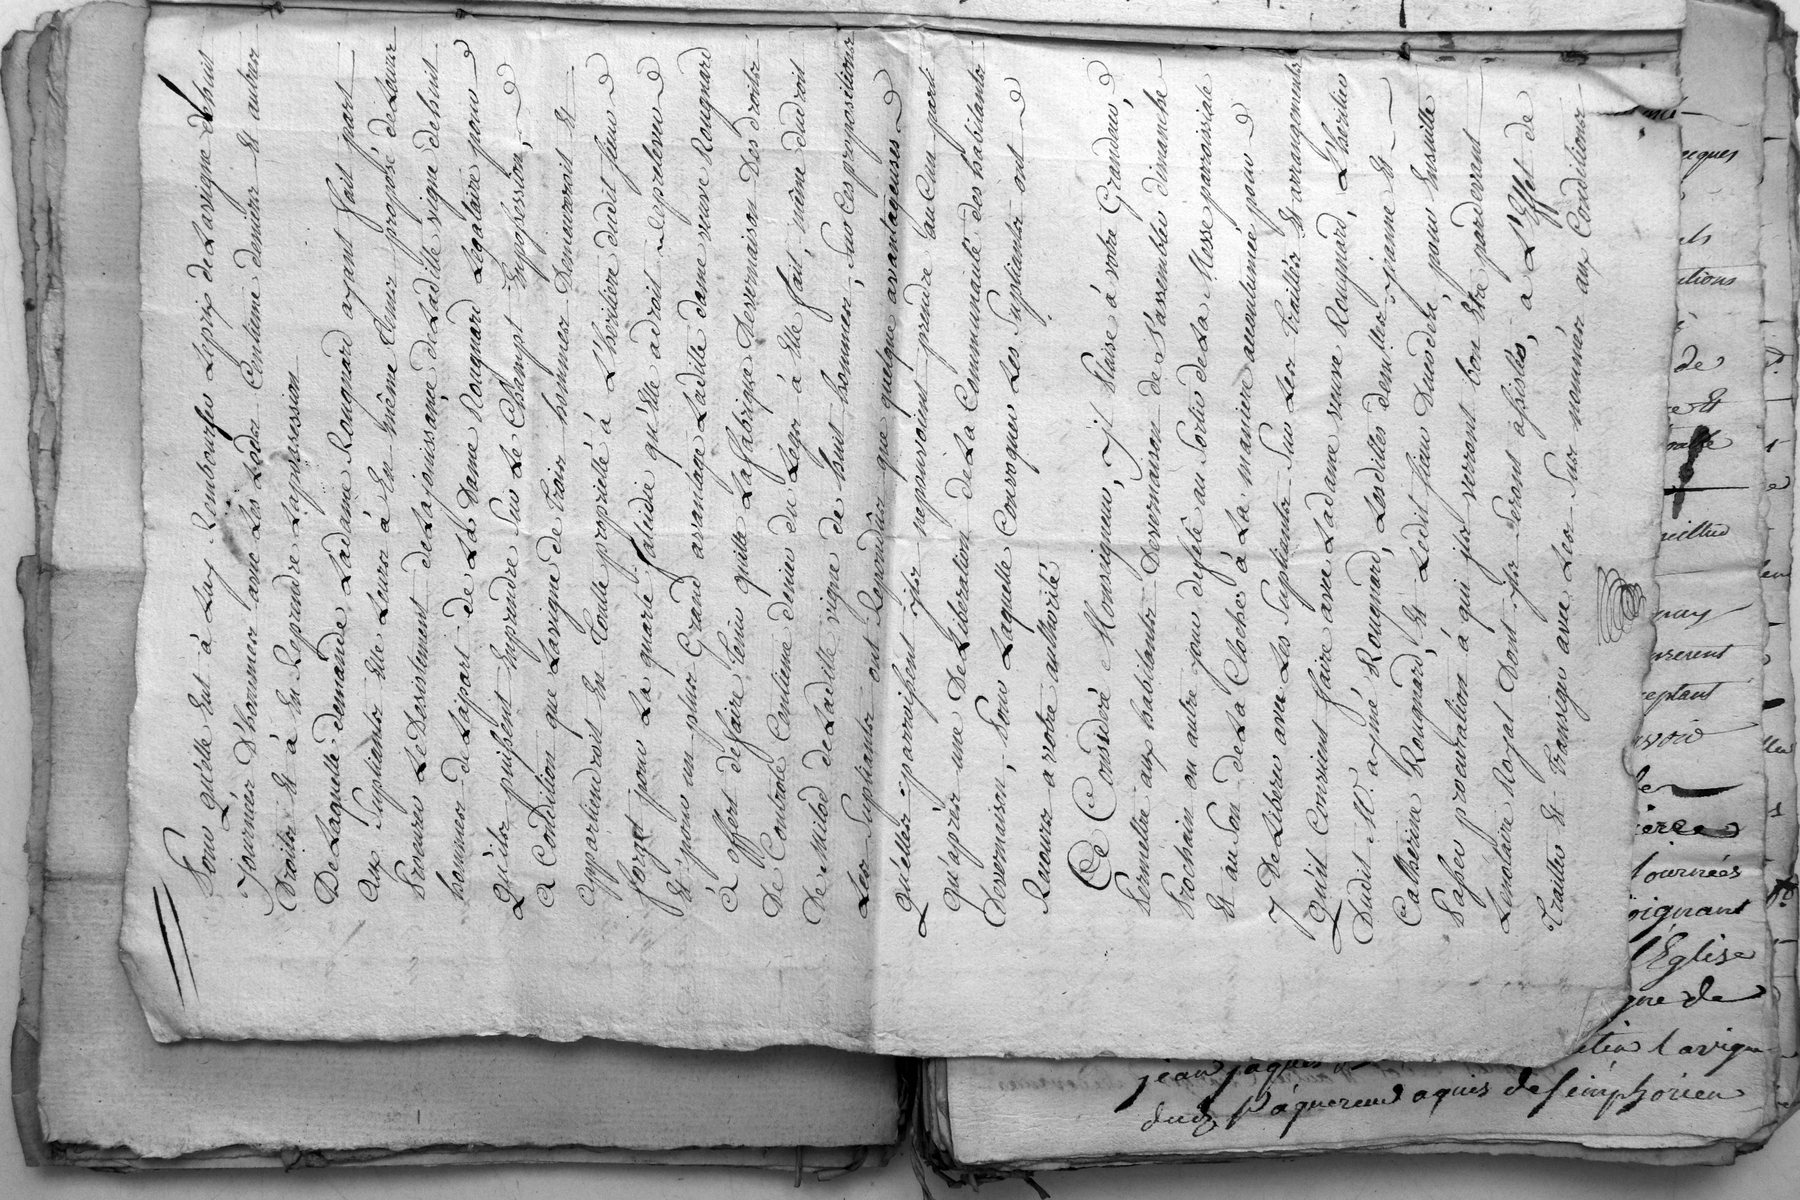 Sous qu'elle Ent à Luy Rembourser Leprix de Lavigne dehuit
Journées D'hommes avec Les Lods Centieme deniers Et autres
Droits Et à En Reprendre Lapossession
De Laquelle demande Ladame Rougnard ayant fait part
aux Suplients Elle Leurs à En même Tems proposé de Leur
Procurer Le Desistement de Lajouissance de Ladille vigne dehuit
hommes de Lapart de La Dame Rougnard Legataire pour
Qu'ils puissent Enprendre Sur Le Champt Enpossession,
a Condition que Lavigne de Trois hommes Demeureroit Et
appartiendroit En Toute propriété à L'heritiere dudit feu
forget pour La quarte falcidie qu'Elle adroit Deprelever
Et pour un plus Grand avantage Ladille dame veuve Rougnard
à offert defaire Tenir quitte Lafabrique Devernaison Des droits
De Controle Centieme denier du Legs à Elle fait, même dudroit
De Milod deLadille vigne de huit hommes, Sur Ces propositions
Les Supliants ont Repondûs que quelque avantageuses
Qu'elles paroissent ils nepouvoient prendre aucun parti
Qu'après une DeLiberation de La Communauté des habitants
Devernaison, Pour Laquelle Convoquer Les Supliants ont
Recours a votre authorité
Ce Consideré Monseigneur, Il Plaise à votre Grandeur,
Permettre aux habitants Devernaison de S'assembler dimanche
Prochain ou autre jour defête au Sortir de La Messe parroissiale
Et au Son de La Cloche à La maniere accoutumée pour
y DeLiberer avec Les Supliants Sur Les Traittés Et arrangements
Qu'il Convient faire avec Ladame veuve Rougnard, L'heritier
Dudit Mr. aymé Rougnard, Lesdittes demlles jeanne Et
Catherine Rougnard, Et Ledit sieur Dusoleil, pour Ensuitte
Passer procuration à qui ils verront bon Etre pardevant
Lenotaire Royal Dont ils Seront assistés, à L'Effet de
Traitter Et Transiger avec Les Sus nommées aux Conditions
ecques
de
Tournées
oignant
l'Eglise
gne de
lavigne
jean jaques
aquis de Simphorien